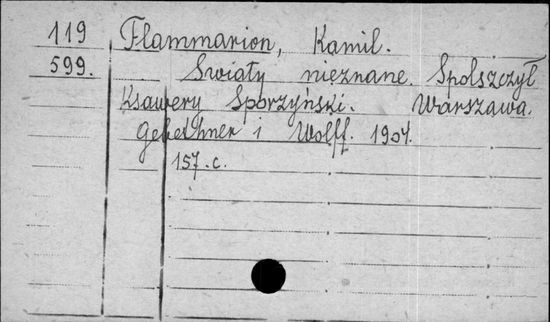 119 Flammarion, Kamil.
599. Swiaty nieznane. Spolszczył
Ksawery Sporzyński. Warszawa.
Gebethner i Wolff. 1904.
157.c.